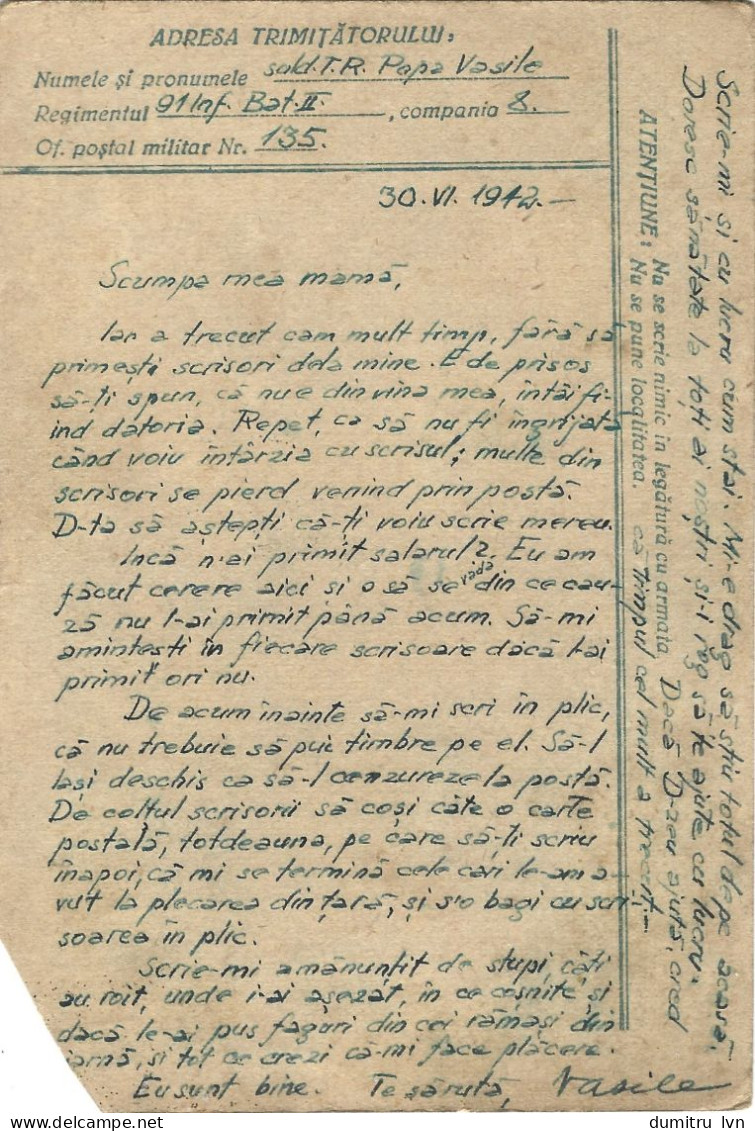 ADRESA TRIMIȚĂTORULUI:
Numele și pronumele sold. T.R. Popa Vasile
Regimentul 91 Inf. Bat. II, compania 8.
Of. poștal militar Nr. 135.
30.VI.1942.-
Scumpa mea mamă,
Iar a trecut cam mult timp, fără să
primești scrisori dela mine. E de prisos
să-ți spun, că nu e din vina mea, întâi fi-
ind datoria. Repet, ca să nu fi îngrijată
când voiu întârzia cu scrisul; multe din
scrisori se pierd venind prin poștă.
D-ta să aștepți că-ți voiu scrie mereu.
Încă n-ai primit salarul? Eu am
făcut cerere aici si o să se vada din ce cau-
ză nu l-ai primit până acum. Să-mi
amintești în fiecare scrisoare dacă l-ai
primit ori nu.
De acum înainte să-mi scri în plic,
că nu trebuie să pui timbre pe el. Să-l
lași deschis ca să-l cenzureze la poștă.
De colțul scrisorii să coși câte o carte
poștală, totdeauna, pe care să-ți scriu
înapoi, că mi se termină cele cari le-am a-
vut la plecarea din țară, și s'o bagi cu scri-
soarea în plic.
Scrie-mi amănunțit de stupi, câți
au roit, unde i-ai așezat, în ce coșnițe și
dacă le-ai pus faguri din cei rămași din
iarnă, și tot ce crezi că-mi face plăcere.
Eu sunt bine. Te sărută, Vasile
ATENȚIUNE: Nu se scrie nimic în legătură cu armata.
Nu se pune localitatea.
Scrie-mi si cu lucru cum stai. Mi-e drag să știu totul de pe acasă.
Doresc sănătate la toți ai noștri și-i rog să te ajute cu lucru.
Dacă D-zeu ajută, cred
că timpul cel mult a trecut.-
dumitru lvn